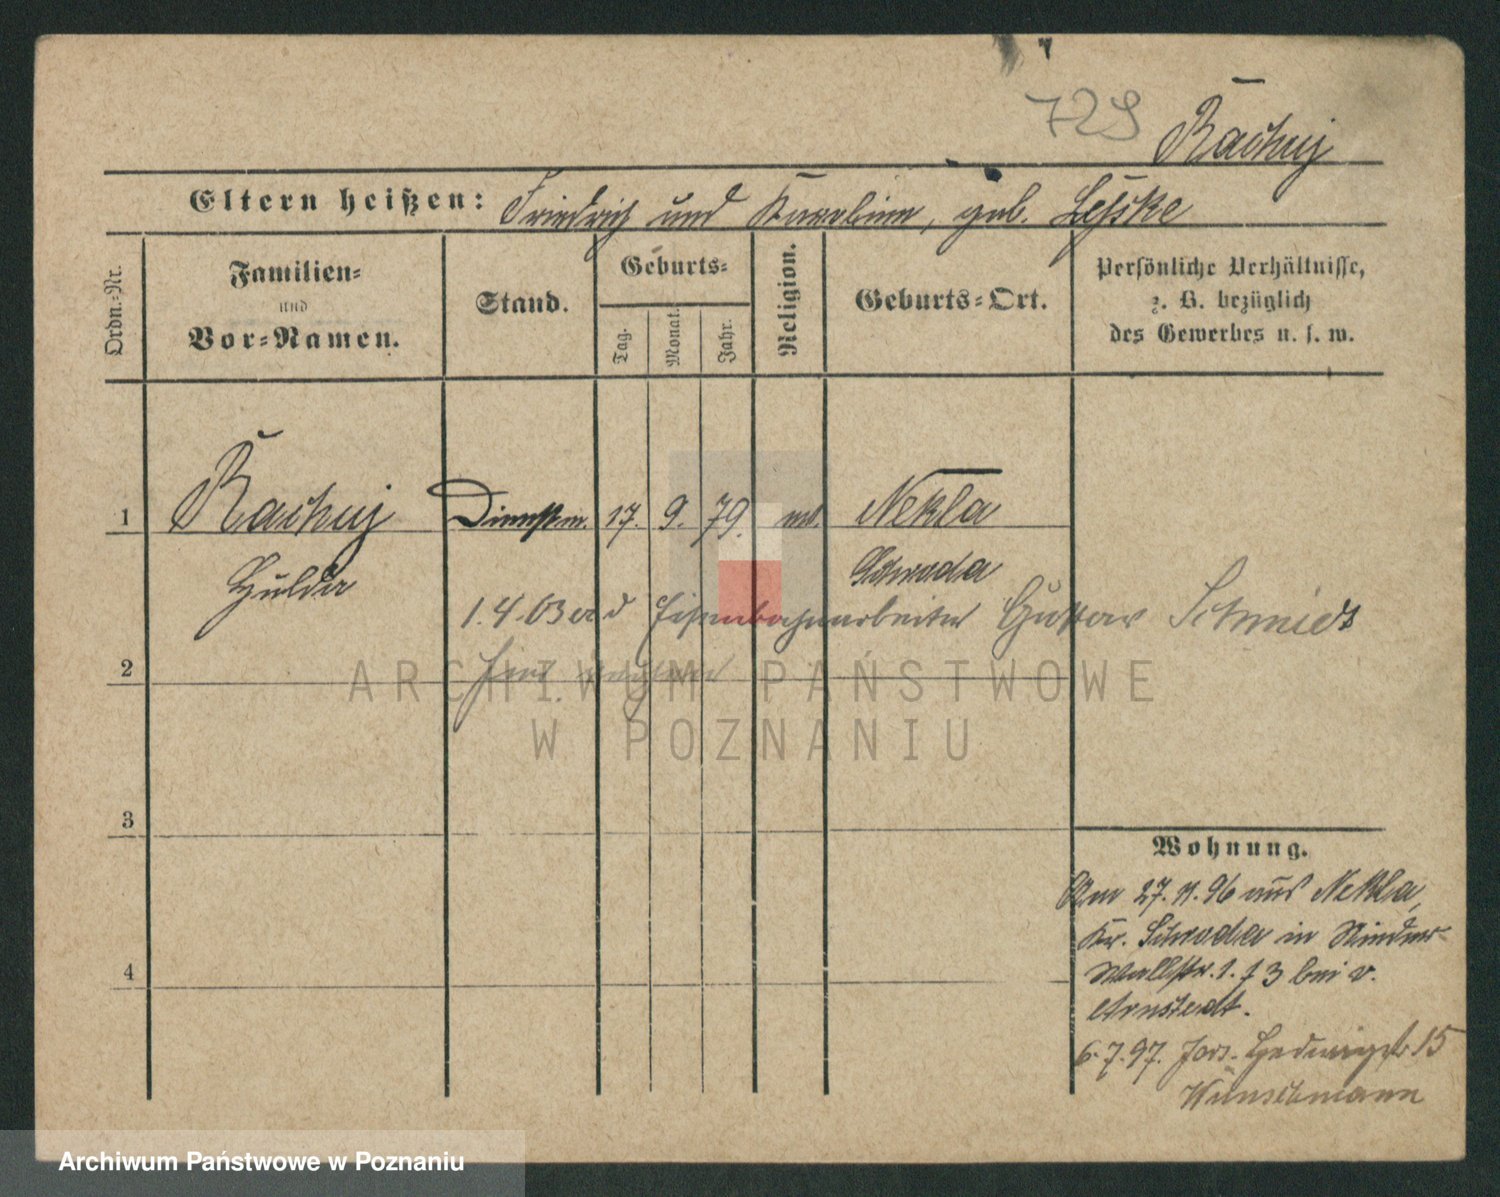 729
Rachuj
Eltern heißen: Friedrich und Karoline, geb. Leske
Ordn.-Nr.
Familien-
und
Vor-Namen.
Stand.
Geburts-
Tag.
Monat.
Jahr.
Religion.
Geburts-Ort.
Persönliche Verhältnisse,
z. B. bezüglich
des Gewerbes u. s. w.
1 Rachuj Dienstm. 17. 9. 79. Nekla
Hulda Schroda
1.4.03 Eisenbahnarbeiter Gustav Schmidt
hier
2
3
4
Wohnung.
Am 27.11.96 aus Nekla,
Kr. Schroda in Nieder
Wallstr. 1. 13 bei v.
Arnstedt.
6.7.97. Hedwigstr 15
Wünschmann
ARCHIWUM PAŃSTWOWE
W POZNANIU
Archiwum Państwowe w Poznaniu